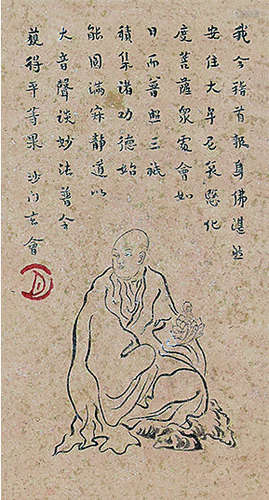 我今稽首報身佛湛然
安住大牟尼哀愍化
度菩薩眾處會如
日而普照三祇
積集諸功德始
能圓滿寂靜道以
大音聲談妙法普令
獲得平等果 沙门玄會